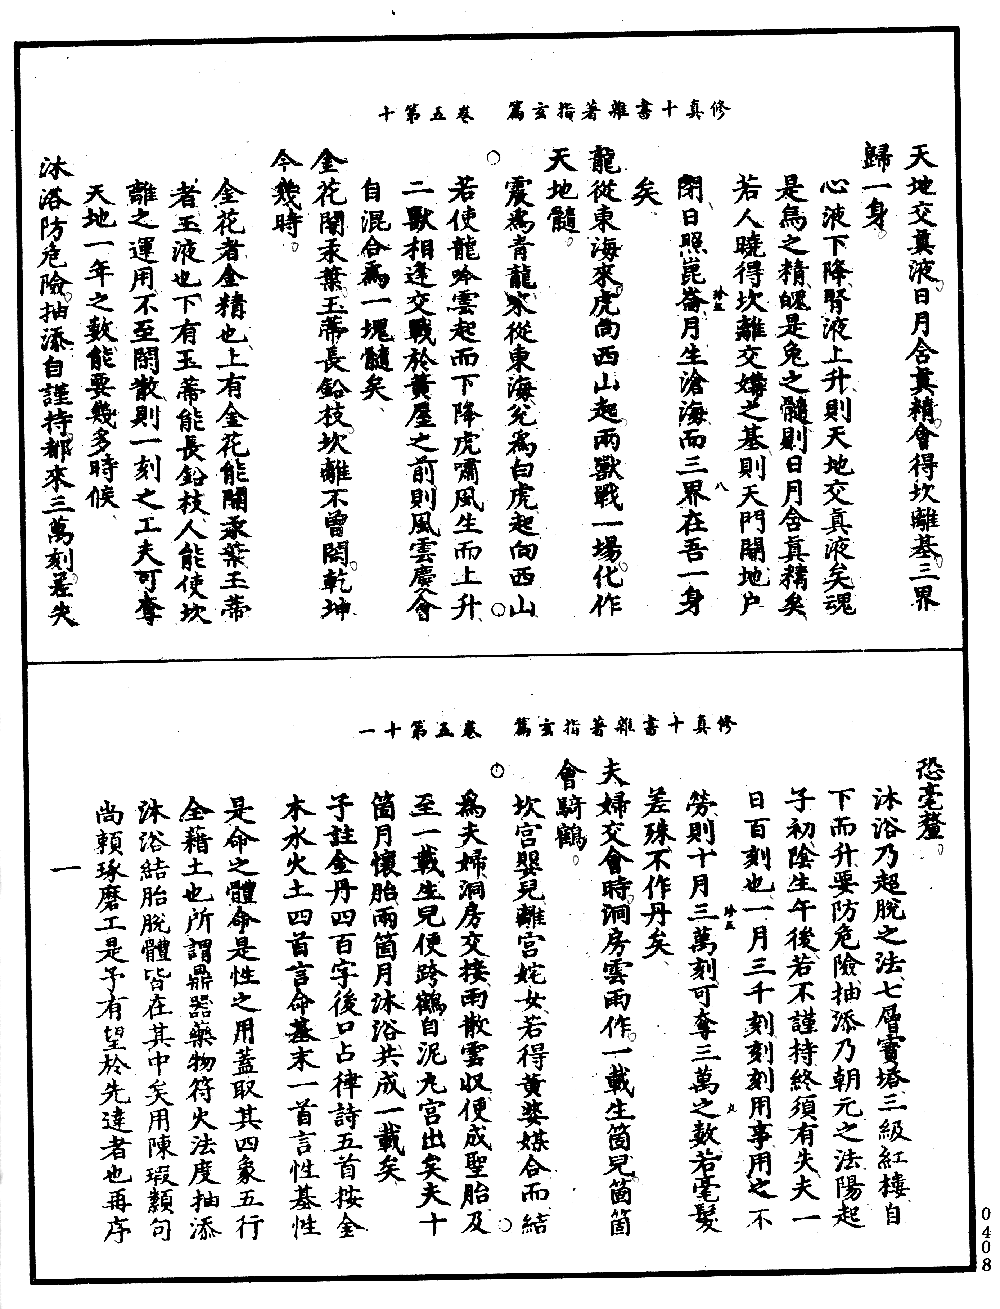 修真十書雜著指玄篇　卷五第十
天地交真液日月含真精會得坎離基三界
歸一身
心液下降腎液上升則天地交真液矣魂
是烏之精魄是兔之髓則日月含真精矣
若人曉得坎離交媾之基則天門開地戶
閉日照崑崙月生滄海而三界在吾一身
矣
龍從東海來虎向西山起兩獸戰一場化作
天地髓
震爲青龍來從東海兌爲白虎起向西山
若使龍吟雲起而下降虎嘯風生而上升
二獸相逢交戰於黃屋之前則風雲慶會
自混合爲一塊髓矣
金花開汞葉玉蒂長鉛枝坎離不曾閑乾坤
今幾時
金花者金精也上有金花能開汞葉玉蒂
者玉液也下有玉蒂能長鉛枝人能使坎
離之運用不至閑散則一刻之工夫可奪
天地一年之數能要幾多時候
沐浴防危險抽添自謹持都來三萬刻差失
修真十書雜著指玄篇　卷五第十一
恐毫釐
沐浴乃超脫之法七層寶塔三級紅樓自
下而升要防危險抽添乃朝元之法陽起
子初陰生午後若不謹持終須有失夫一
日百刻也一月三千刻刻刻用事用之不
勞則十月三萬刻可奪三萬之數若毫髮
差殊不作丹矣
夫婦交會時洞房雲雨作一載生箇兒箇箇
會騎鶴
坎宮嬰兒離宮姹女若得黃婆媒合而結
爲夫婦洞房交接雨散雲收便成聖胎及
至一載生兒便跨鶴自泥丸宮出矣夫十
箇月懷胎兩箇月沐浴共成一載矣
子註金丹四百字後口占律詩五首按金
木水火土四首言命基末一首言性基性
是命之體命是性之用蓋取其四象五行
全藉土也所謂鼎器藥物符火法度抽添
沐浴結胎脫體皆在其中矣用陳瑕纇句
尚賴琢磨工是予有望於先達者也再序
一
0408